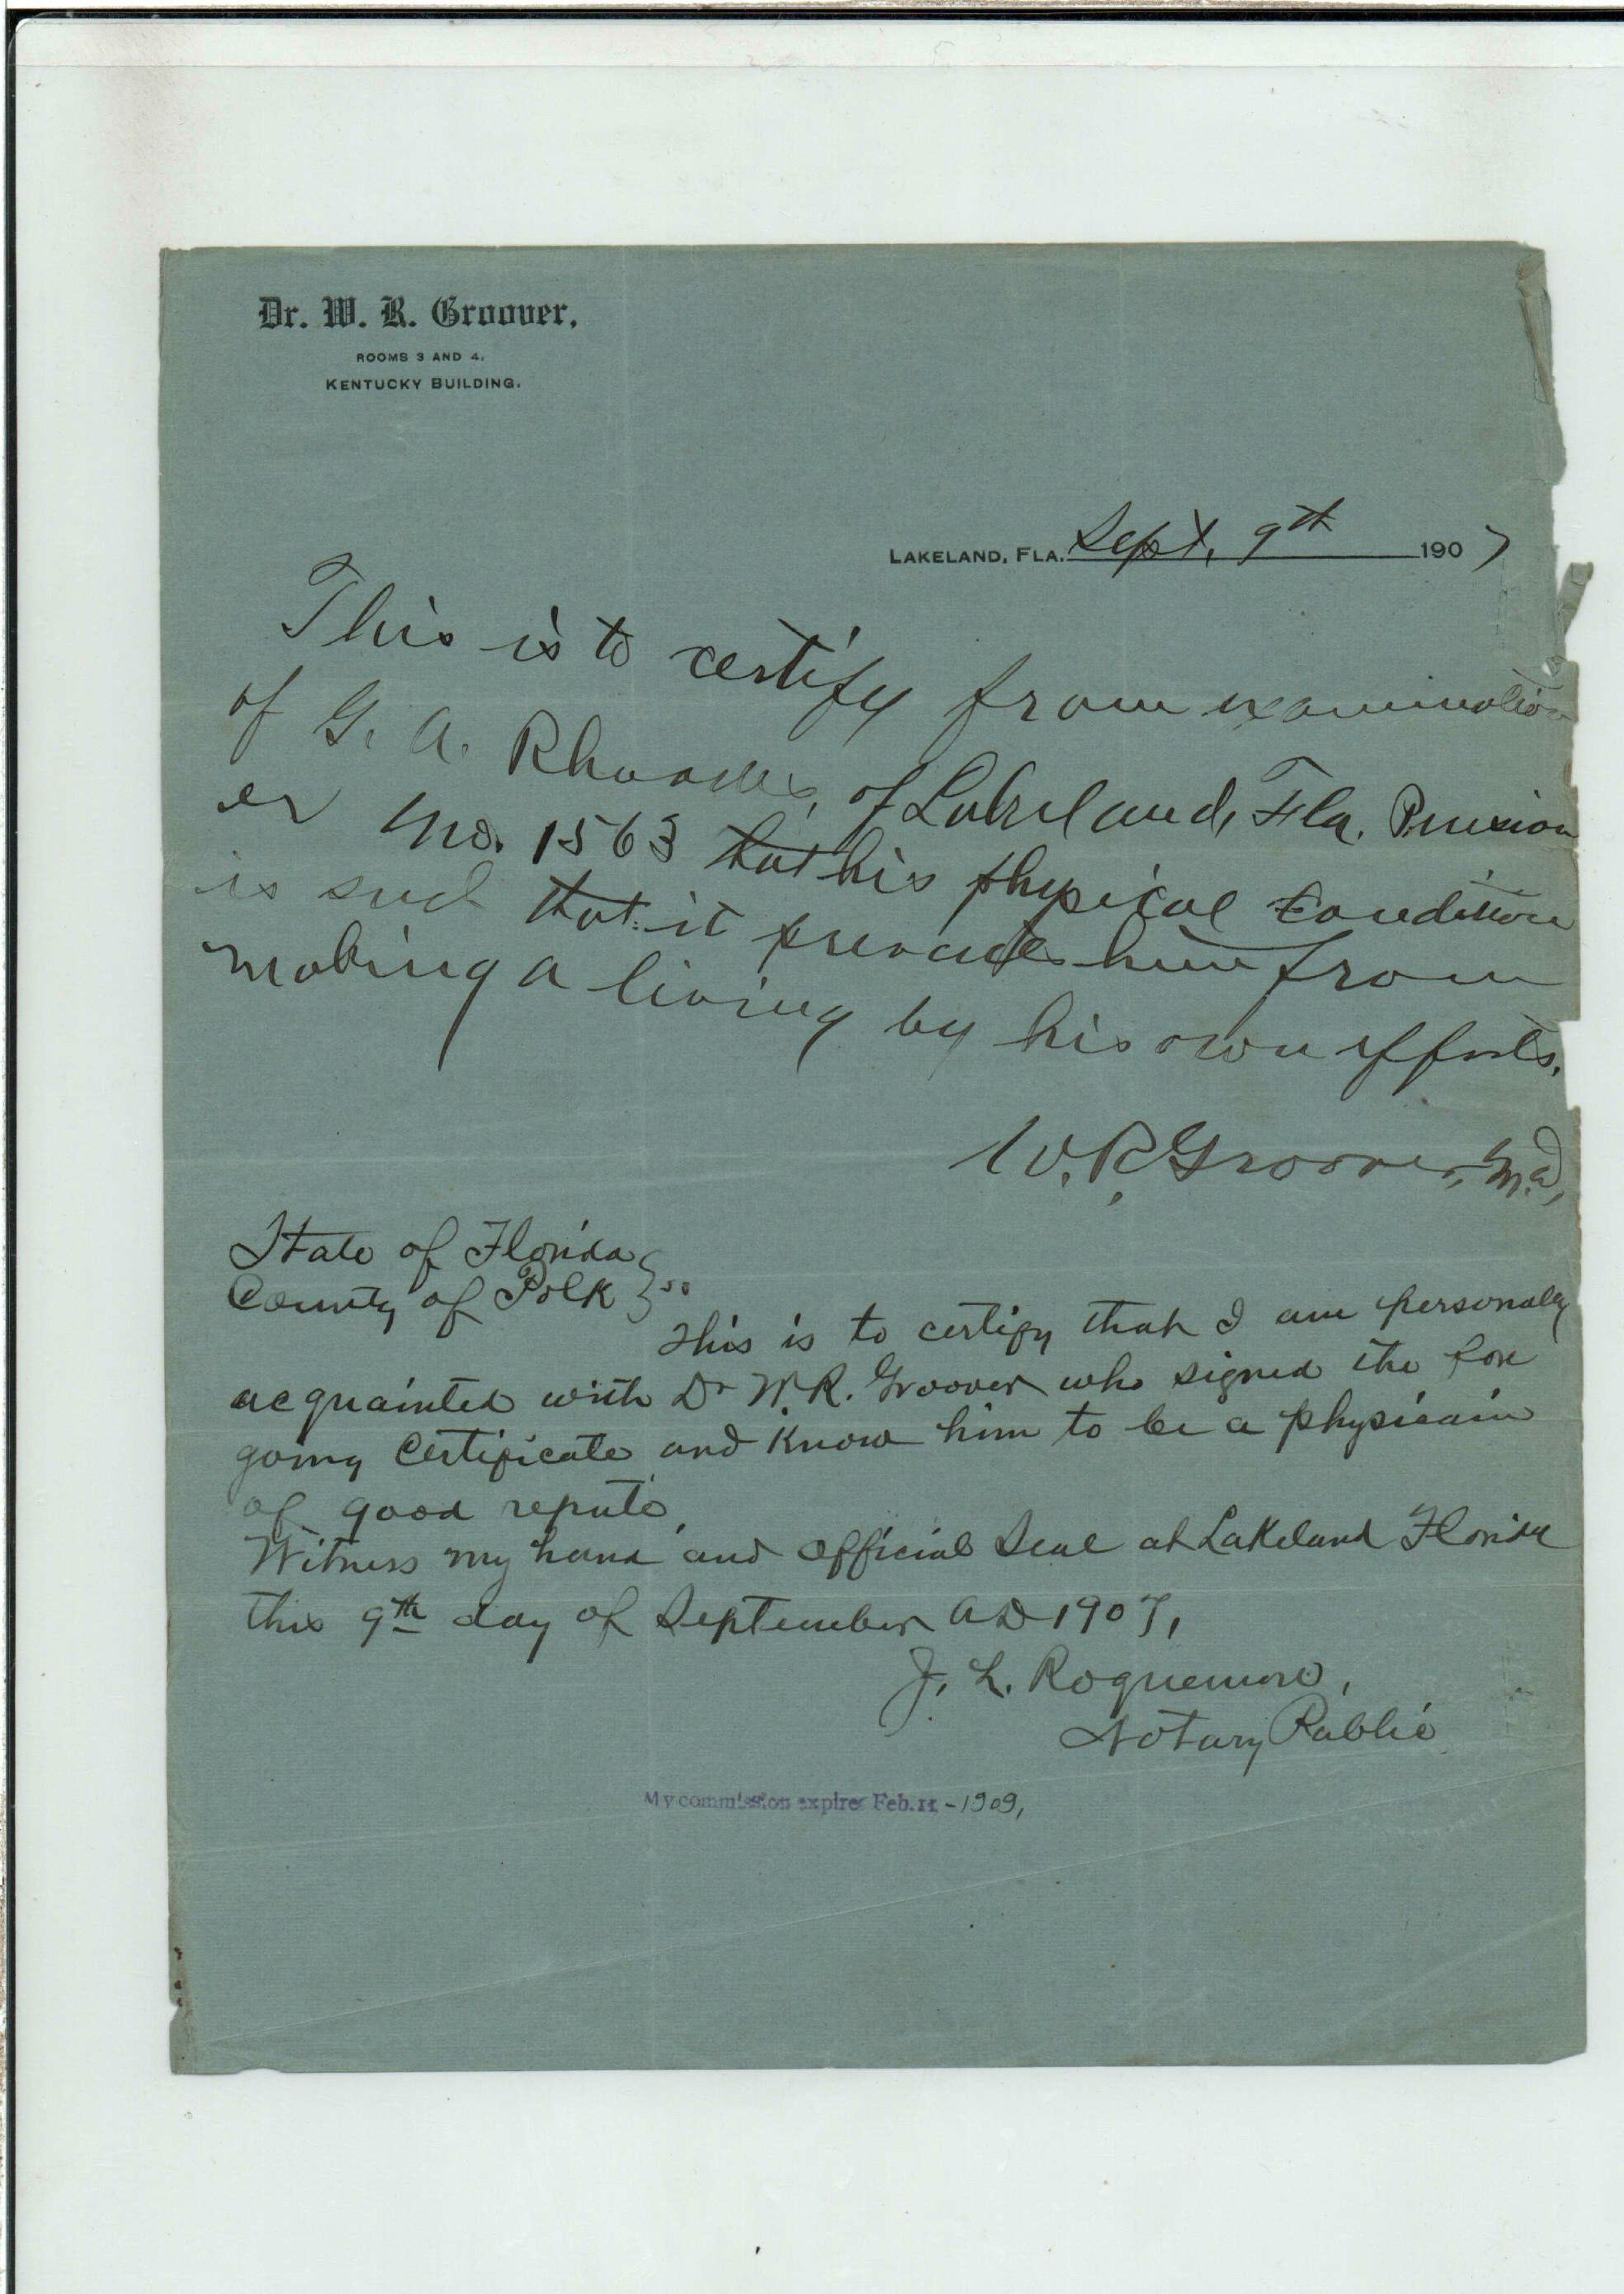 Dr. W. R. Groover,
ROOMS 3 AND 4,
KENTUCKY BUILDING.
LAKELAND, FLA. Sept, 9th 1907
This is to certify from examination
of G. A. Rhoades, of Lakeland, Fla. Pension
er No. 1563 that his physical condition
is such that it him from
making a living by his own efforts.
W. R. Groover, M.D,
State of Florida
County of Polk } ss
This is to certify that I am personally
acquainted with Dr W. R. Groover who signed the fore
going Certificate and know him to be a physicain
of good repute,
Witness my hand and official Seal at Lakeland Florida
this 9th day of September AD 1907,
J. L. Roquemore,
Notary Public
My commission expires Feb. 11 - 1909,